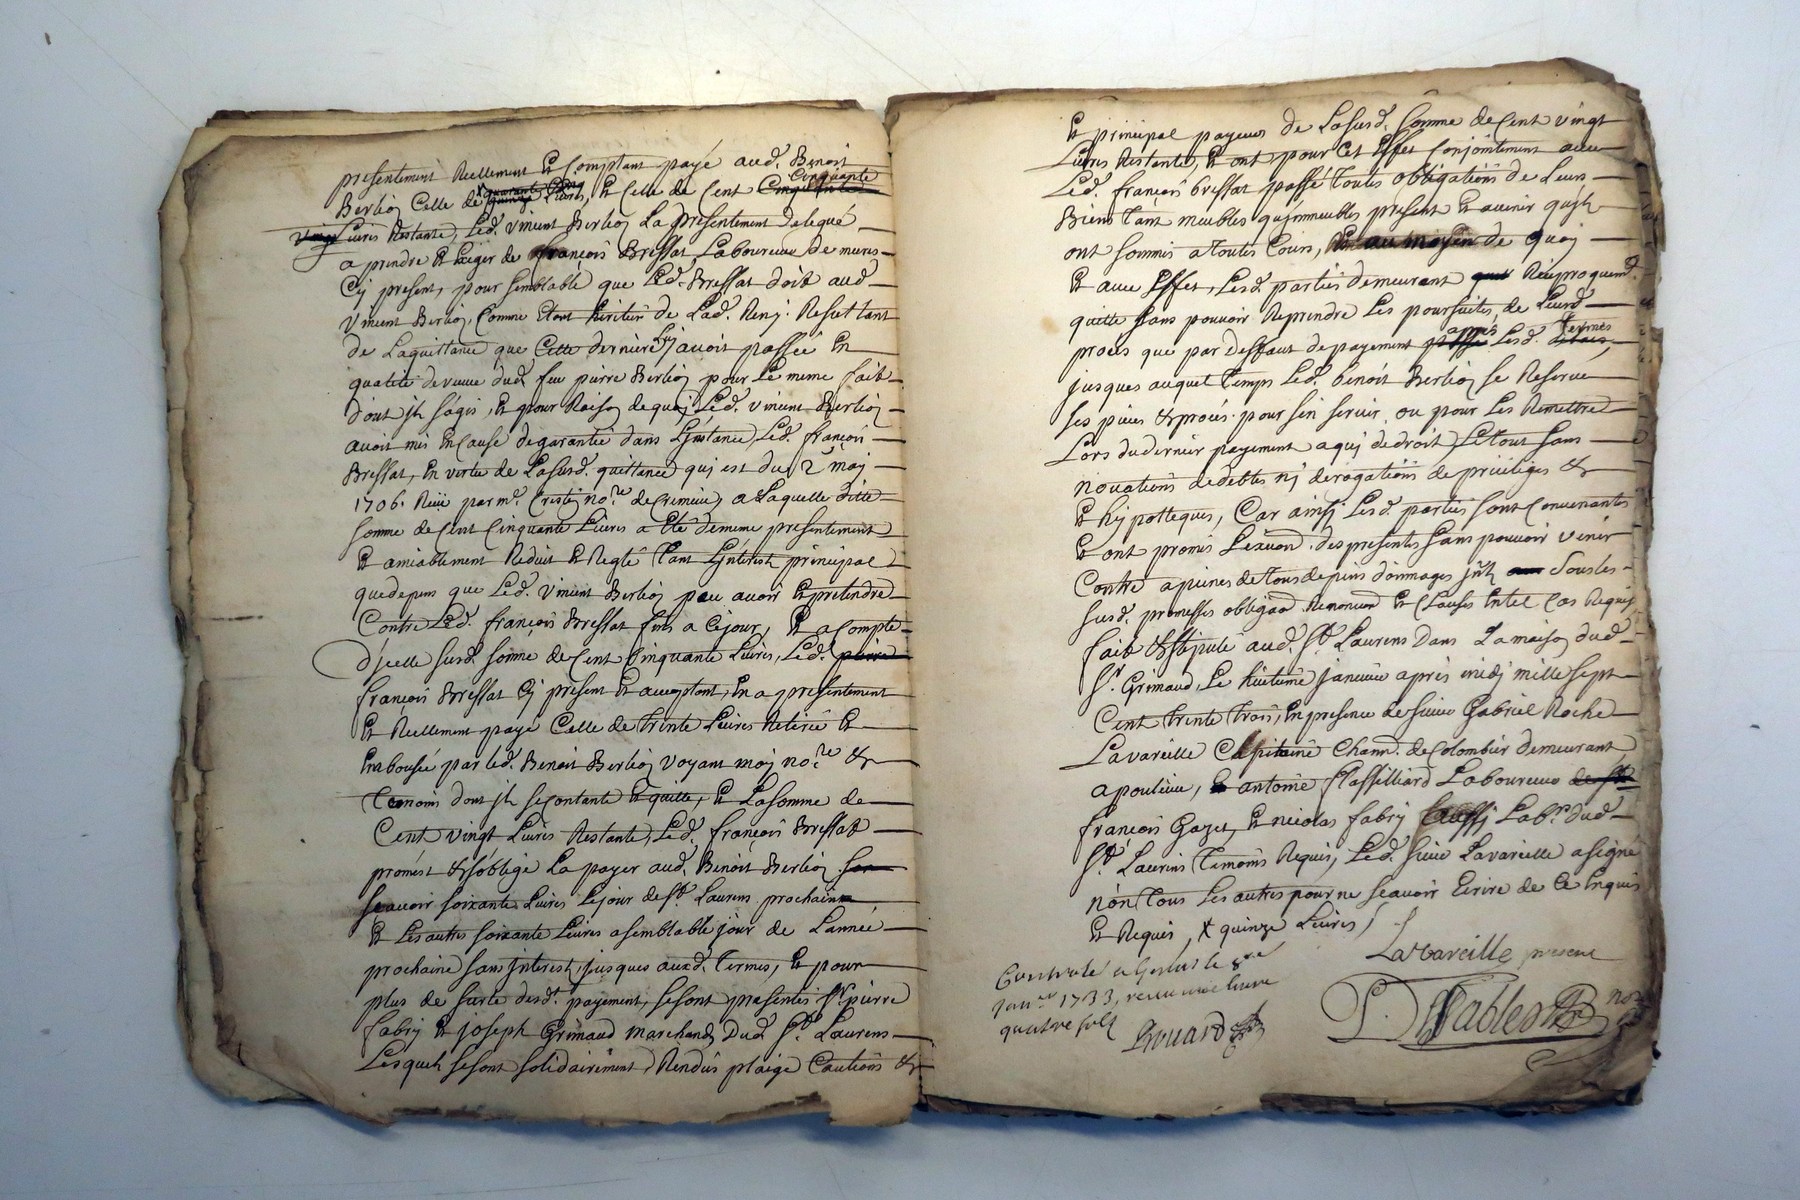 presentement Reellement Et Comptant payé aud. Benoit
Berlioz Celle de quinze Livres, Et Celle de Cent Cinquante
Livres Restante, Led. Vincent Berlioz La presentement delegué
a prendre Et Exiger de françois Bressat Laboureur de mures
Cy present, pour semblable que Led. Bressat doit aud.
Vincent Berlioz, Comme Etant heritier de Lad. Reny. Resultant
de Laquittance que Cette derniere luj avoit passée En
qualité de veuve dud. feu pierre Berlioz pour Le meme fait
dont jl s'agis, Et pour Raison de quoj Led. Vincent Berlioz
avoit mis En Cause de garantie dans L'jnstance, Led. françois
Bressat, En vertu de Lasusd. quittance quj est du 2e maj
1706. Reçüe par me. Crestin nore. de Cremieu, a Laquelle ditte
somme de Cent Cinquante Livres a Eté de meme presentement
Et amiablement Reduit Et Reglé Tant L'jnterest principal
que depens que Led. Vincent Berlioz peu avoir Et pretendre
Contre Led. françois Bressat jusqu a Cejour, Et a Compte
d'jcelle susd. somme de Cent Cinquante Livres, Led.
françois Bressat Cy present Et acceptant, En a presentement
Et Reellement payé Celle de Trente Livres Retirée Et
Emboursée par led. Benoit Berlioz voyant moj nore. &
Temoins dont jl se contante Et quitte, Et La somme de
Cent vingt Livres Restante, Led. françois Bressat
promest & s'oblige La payer aud. Benoit Berlioz
sçavoir soixante Livres Lejour de St. Laurens prochain
Et Les autres soixante Livres a semblable jour de L'année
prochaine sans jnterest, jusques auxd. Termes, Et pour
plus de surté desdt. payement, se sont presentés Srs. pierre
fabry Et joseph Grimaud marchands Dud. St. Laurens
Lesquels se sont solidairement Rendus plaige Cautions &
Et principal payeurs de Lasusd. somme de Cent vingt
Livres Restante, Et ont pour Cet Effet Conjointement avec
Led. françois bressat passé Toutes obligations de Leurs
Biens Tant meubles qu'jmmeubles present Et avenir qu'jls
ont soumis a toutes Cours, Et au moyen de quoj
Et avec Effet, Lesd. parties demeurant Reciproquemt.
quitte sans pouvoir Reprendre Les poursuittes, de Leurd.
proces que par deffaut de payement apres Lesd. Termes
jusques auquel Temps Led. benoit Berlioz se Reserve
ses pieces & procés pour s'en servir ou pour Les Remettre
Lors du dernier payement a quj de droit, Le tout sans
novations de debtes nj derogations de privileges &
Et hypotteques, Car ainsj Lesd. parties sont Convenantes
Et ont promis L'execuon. des presentes sans pouvoir venir
Contre a peines de tous depens dommages jnts. sous les
susd. promesses obligaons. Renoncions. Et Clauses En tel Cas Requis
fait & stipulé aud. St. Laurens Dans La maison dud.
Sr. Grimaud, Le huitieme janvier après midj mille sept
Cent trente trois, En presence de sieur Gabriel Roche
Lavareille Capitaine Chann. de Colombier demeurant
a poulieu, antoine flassilliard Laboureur
françois Gazet, Et nicolas fabry aussj Labr. dud.
St. Laurens Temoins Requis, Led. sieur Lavareille a signé
non Tous Les autres pour ne sçavoir Ecrire de Ce Enquis
Et Requis, X quinze Livres /
Lavareille present
Controlé a le 8me
janer 1733, receu une livre
quattre sols
Brouard
nore